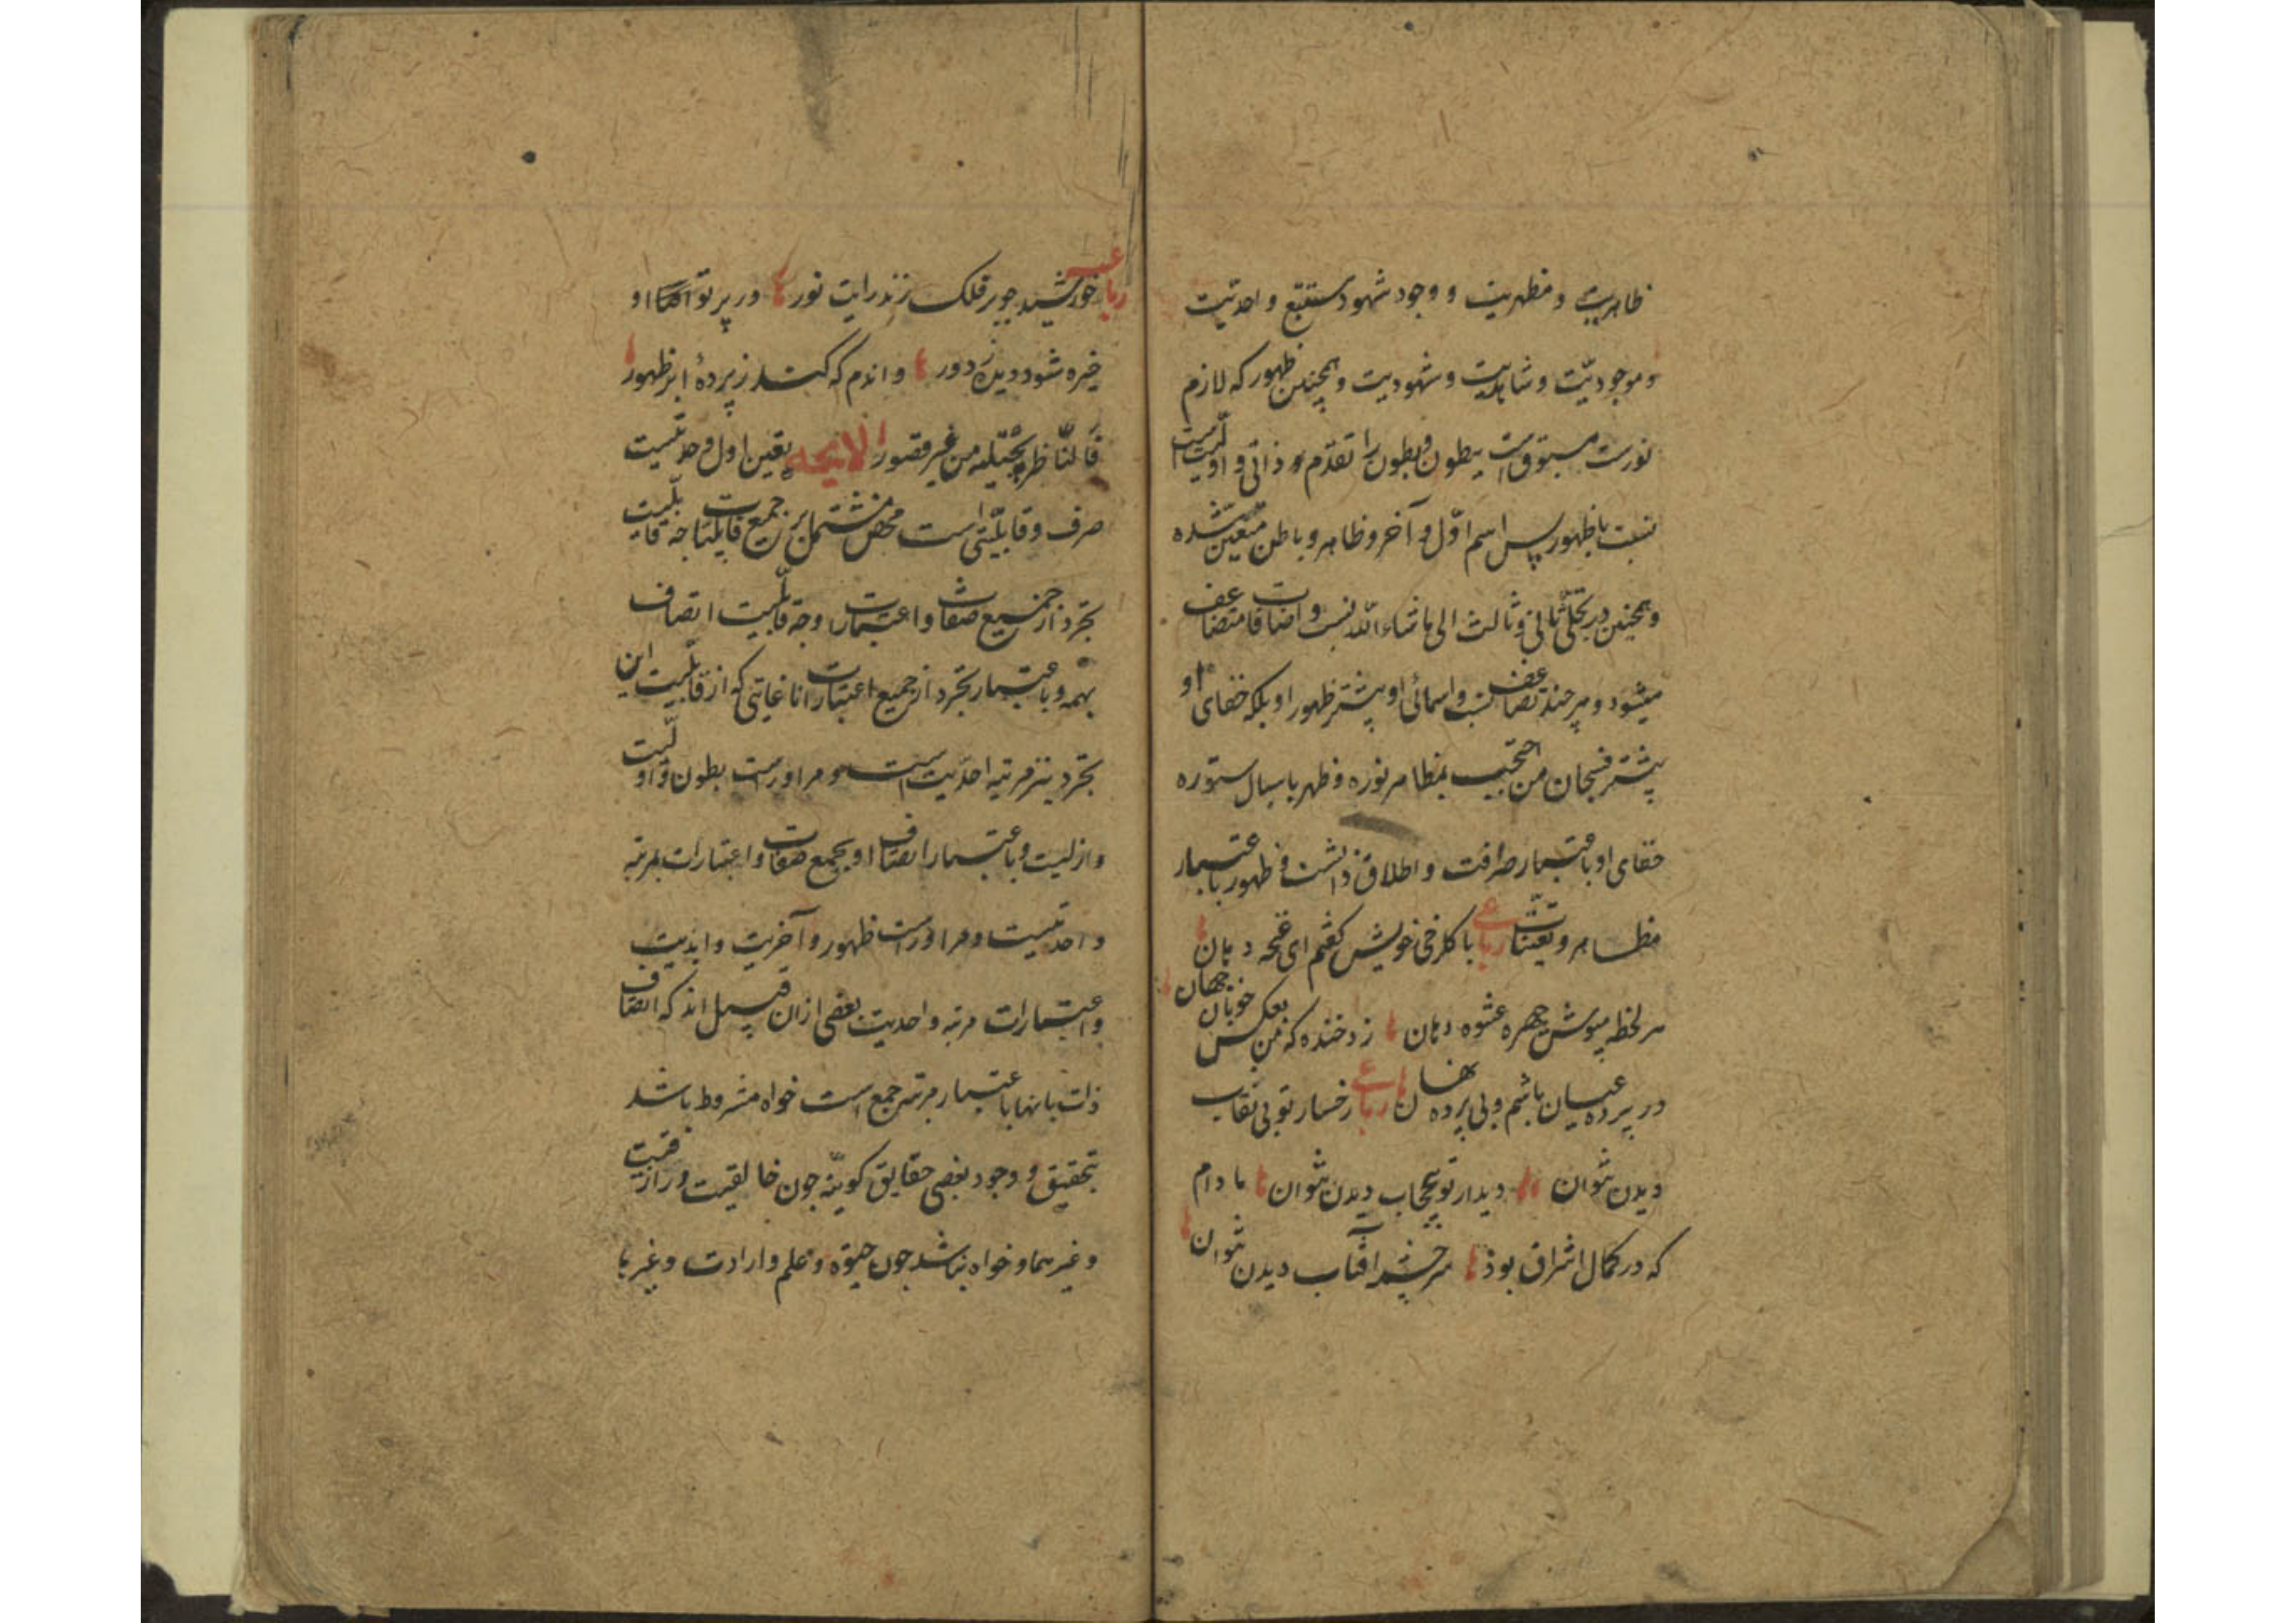 ظاهریت و مظهریت و وجود شهود مستتبع واحدیت
و موجودیّت و شاهدیت و مشهودیت و همچنین ظهور که لازم
نورست مسبوق است ببطون و بطون را تقدّم ذاتی و اولیّت است
نسبت با ظهور پس اسم اوّل و آخر و ظاهر و باطن متعیّن شده
و همچنین در تجلّی ثانی و ثالث الی ماشاء اللّه نسب و اضافات متضاعف
میشود و هر چند تضاعف نسب و اسمائی او بیشتر ظهور او بلکه خفای او
بیشتر فسبحان من احتجب بمظاهر نوره و ظهر باسبال ستوره
خفای او باعتبار صرافت و اطلاق ذاتست و ظهور باعتبار
مظاهر و تعیّنات رباعی با گلرخ خویش گفتم ای غنچه دهان
هر لحظه مپوش چهره عشوه دهان زد خنده که من بعکس خوبان جهان
در پرده عیان باشم و بی پرده نهان رباعی رخسار تو بی نقاب
دیدن نتوان دیدار تو بیحجاب دیدن نتوان مادام
که در کمال اشراق بود سرچشمه آفتاب دیدن نتوان
رباعیه خورشید چو بر فلک زند رایت نور در پرتو او
خیره شود دیده ز دور واندم که کند ز پرده ابر ظهور
فالنّاظر یجتلیه من غیر قصور لایحه تعین اول وحدتیست
صرف و قابلیّتی است محض مشتمل بر جمیع قابلیّات چه قابلیّت
تجرد از جمیع صفات و اعتبارات و چه قابلّیت اتصاف
بهمه و باعتبار تجرد از جمیع اعتبارات تا غایتی که از قابلیّت این
تجرد نیز مرتبه احدیّت است و مر اوراست بطون و اولیّت
و ازلیت و باعتبار اتصاف او بجمیع صفات و اعتبارات مرتبه
واحدیّتست و مر اوراست ظهور و آخریت و ابدیت
و اعتبارات مرتبه واحدیت بعضی از آن قبیل اند که اتصاف
ذات بانها باعتبار مرتبه جمع است خواه مشروط باشد
بتحقیق و وجود بعضی حقایق کونیّه چون خالقیت و رازقیت
و غیرهما و خواه نباشد چون حیوة و علم و ارادت و غیرها